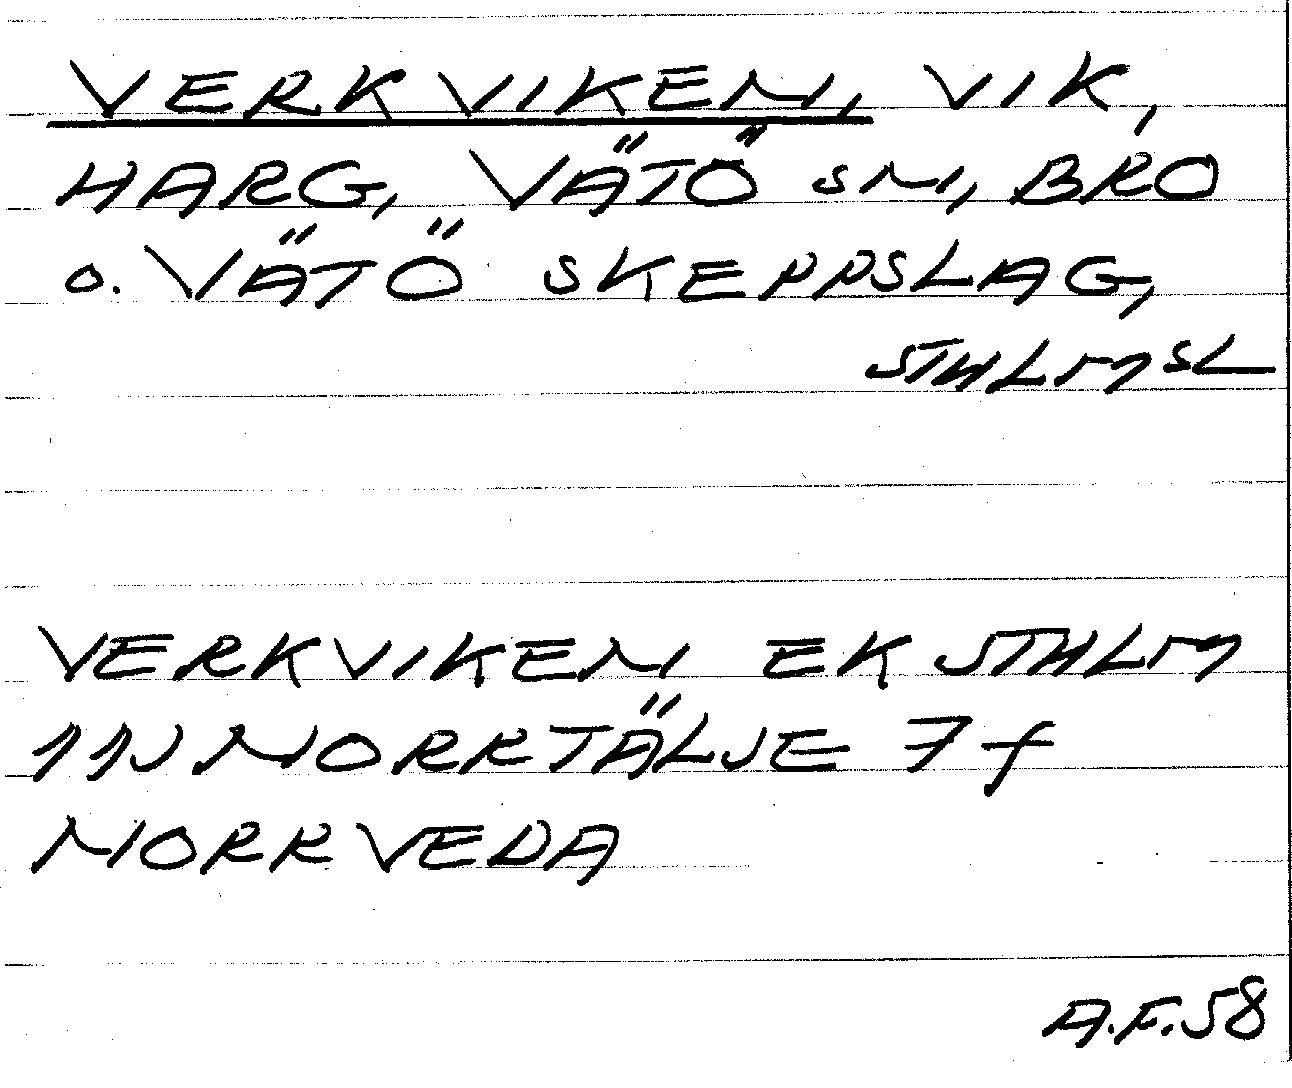 VERKVIKEN, VIK,
HARG, VÄTÖ SN, BRO
O. VÄTÖ SKEPPSLAG,
STHLMSL
VERKVIKEN EK STHLM
11J NORRTÄLJE 7f
NORRVEDA
A.F.58